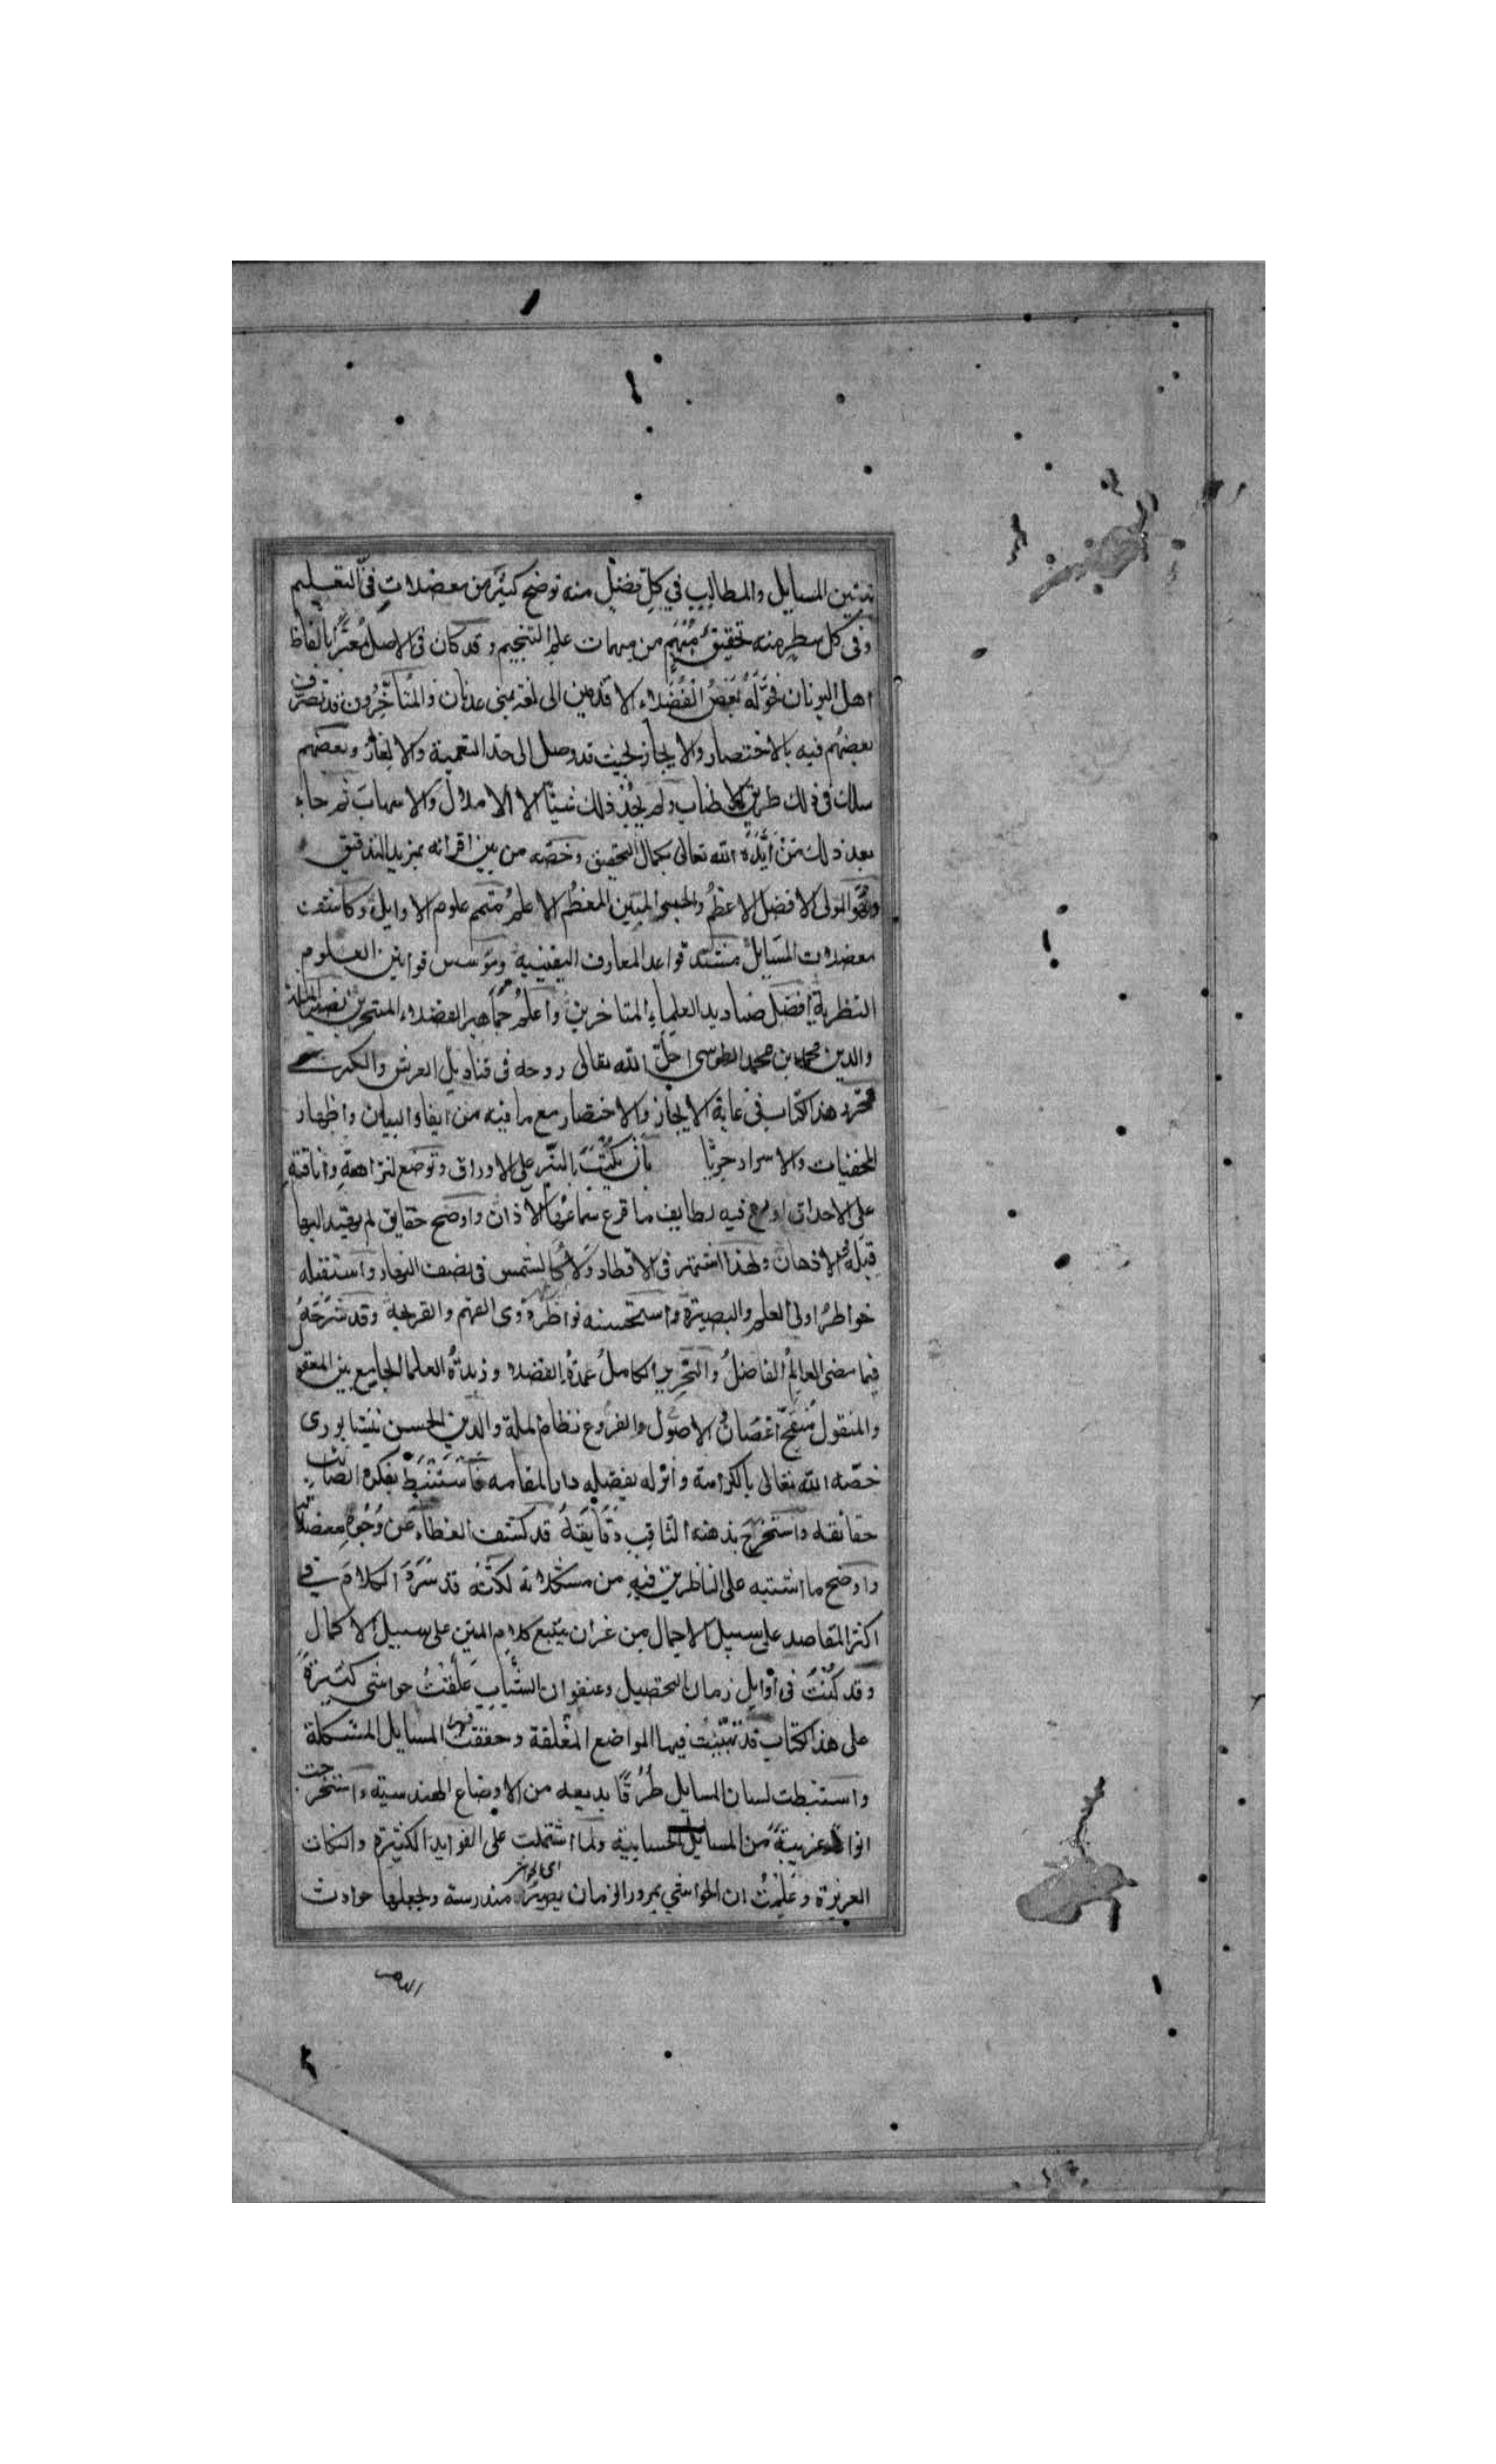 تبيين المسايل والمطالب في كل فصل منه توضح كثير من معضلات في التعليم
وفى كل سطر منه تحقيق مهم من مهمات علم التنجيم وقد كان فى الاصل معبرا بالفاظ
اهل اليونان فحوّله بعض الفضلاء الاقدمين الى لغة بنى عدنان والمتأخرون قد تصرف
بعضهم فيه بالاختصار والايجاز بحيث قد وصل الى حد التعمية والالغاز وبعضهم
سلك فى ذلك طريق الاطناب ولم يجد ذلك شيئا الا الاملال والاسهاب ثم جاء
بعد ذلك من ايّده الله تعالى بكمال التحقيق وخصّه من بين اقرانه بمزيد التدقيق
وهو المولى الافضل الاعظم والحبر المبين المعظم الاعلم متمم علوم الاوايل وكاشف
معضلات المسايل مشيد قواعد المعارف اليقينية ومؤسس قوانين العلوم
النظرية افضل صناديد العلماء المتاخرين واعلم جماهير الفضلاء المتبحرين نصير الملة
والدين محمد بن محمد الطوسى احلّ الله تعالى روحه فى قناديل العرش والكرسى
فحرر هذا الكتاب فى غاية الايجاز والاختصار مع ما فيه من ايفاء البيان واظهار
المخفيات والاسرار حريّا بأن يكتب بالتبر على الاوراق وتوضع لنزاهته واناقته
على الاحداق اودع فيه لطايف ما قرع سماعها الاذان واوضح حقايق لم يهتد اليها
قبله الاذهان ولهذا اشتهر فى الاقطار ولا كالشمس فى نصف النهار واستقبله
خواطر اولى العلم والبصيرة واستحسنه نواظر ذوى الفهم والقريحة وقد شرحه
فيما مضى العالم الفاضل والنحرير الكامل عمدة الفضلا وزبدة العلما الجامع بين المعقو
والمنقول منقح اغصان الاصول والفروع نظام الملة والدين الحسن نيشابورى
خصّه الله تعالى بالكرامة وانزله بفضله دار المقامه فاستنبط بفكره الصائب
حقائقه واستخرج بذهنه الثاقب دقايقه قد كشف الغطاء عن وجوه معضلاته
واوضح ما اشتبه على الناظرين فيه من مشكلاته لكنه قد سرد الكلام فى
اكثر المقاصد على سبيل الاجمال من غير ان يتبع كلام المتن على سبيل الاكمال
وقد كنت فى اوايل زمان التحصيل وعنفوان الشباب علّقت حواشى كثيرة
على هذا الكتاب قد تبينت فيها المواضع المغلقة وحققت فيها المسايل المشكلة
واستنبطت لسان المسايل طرقا بديعه من الاوضاع الهندسية واستخرجت
انواعا غريبة من المسايل الحسابية ولما اشتملت على الفوايد الكثيرة والنكات
العزيزة وعلمت ان الحواشي بمرور الزمان يصير مندرسة وجعلها حوادث